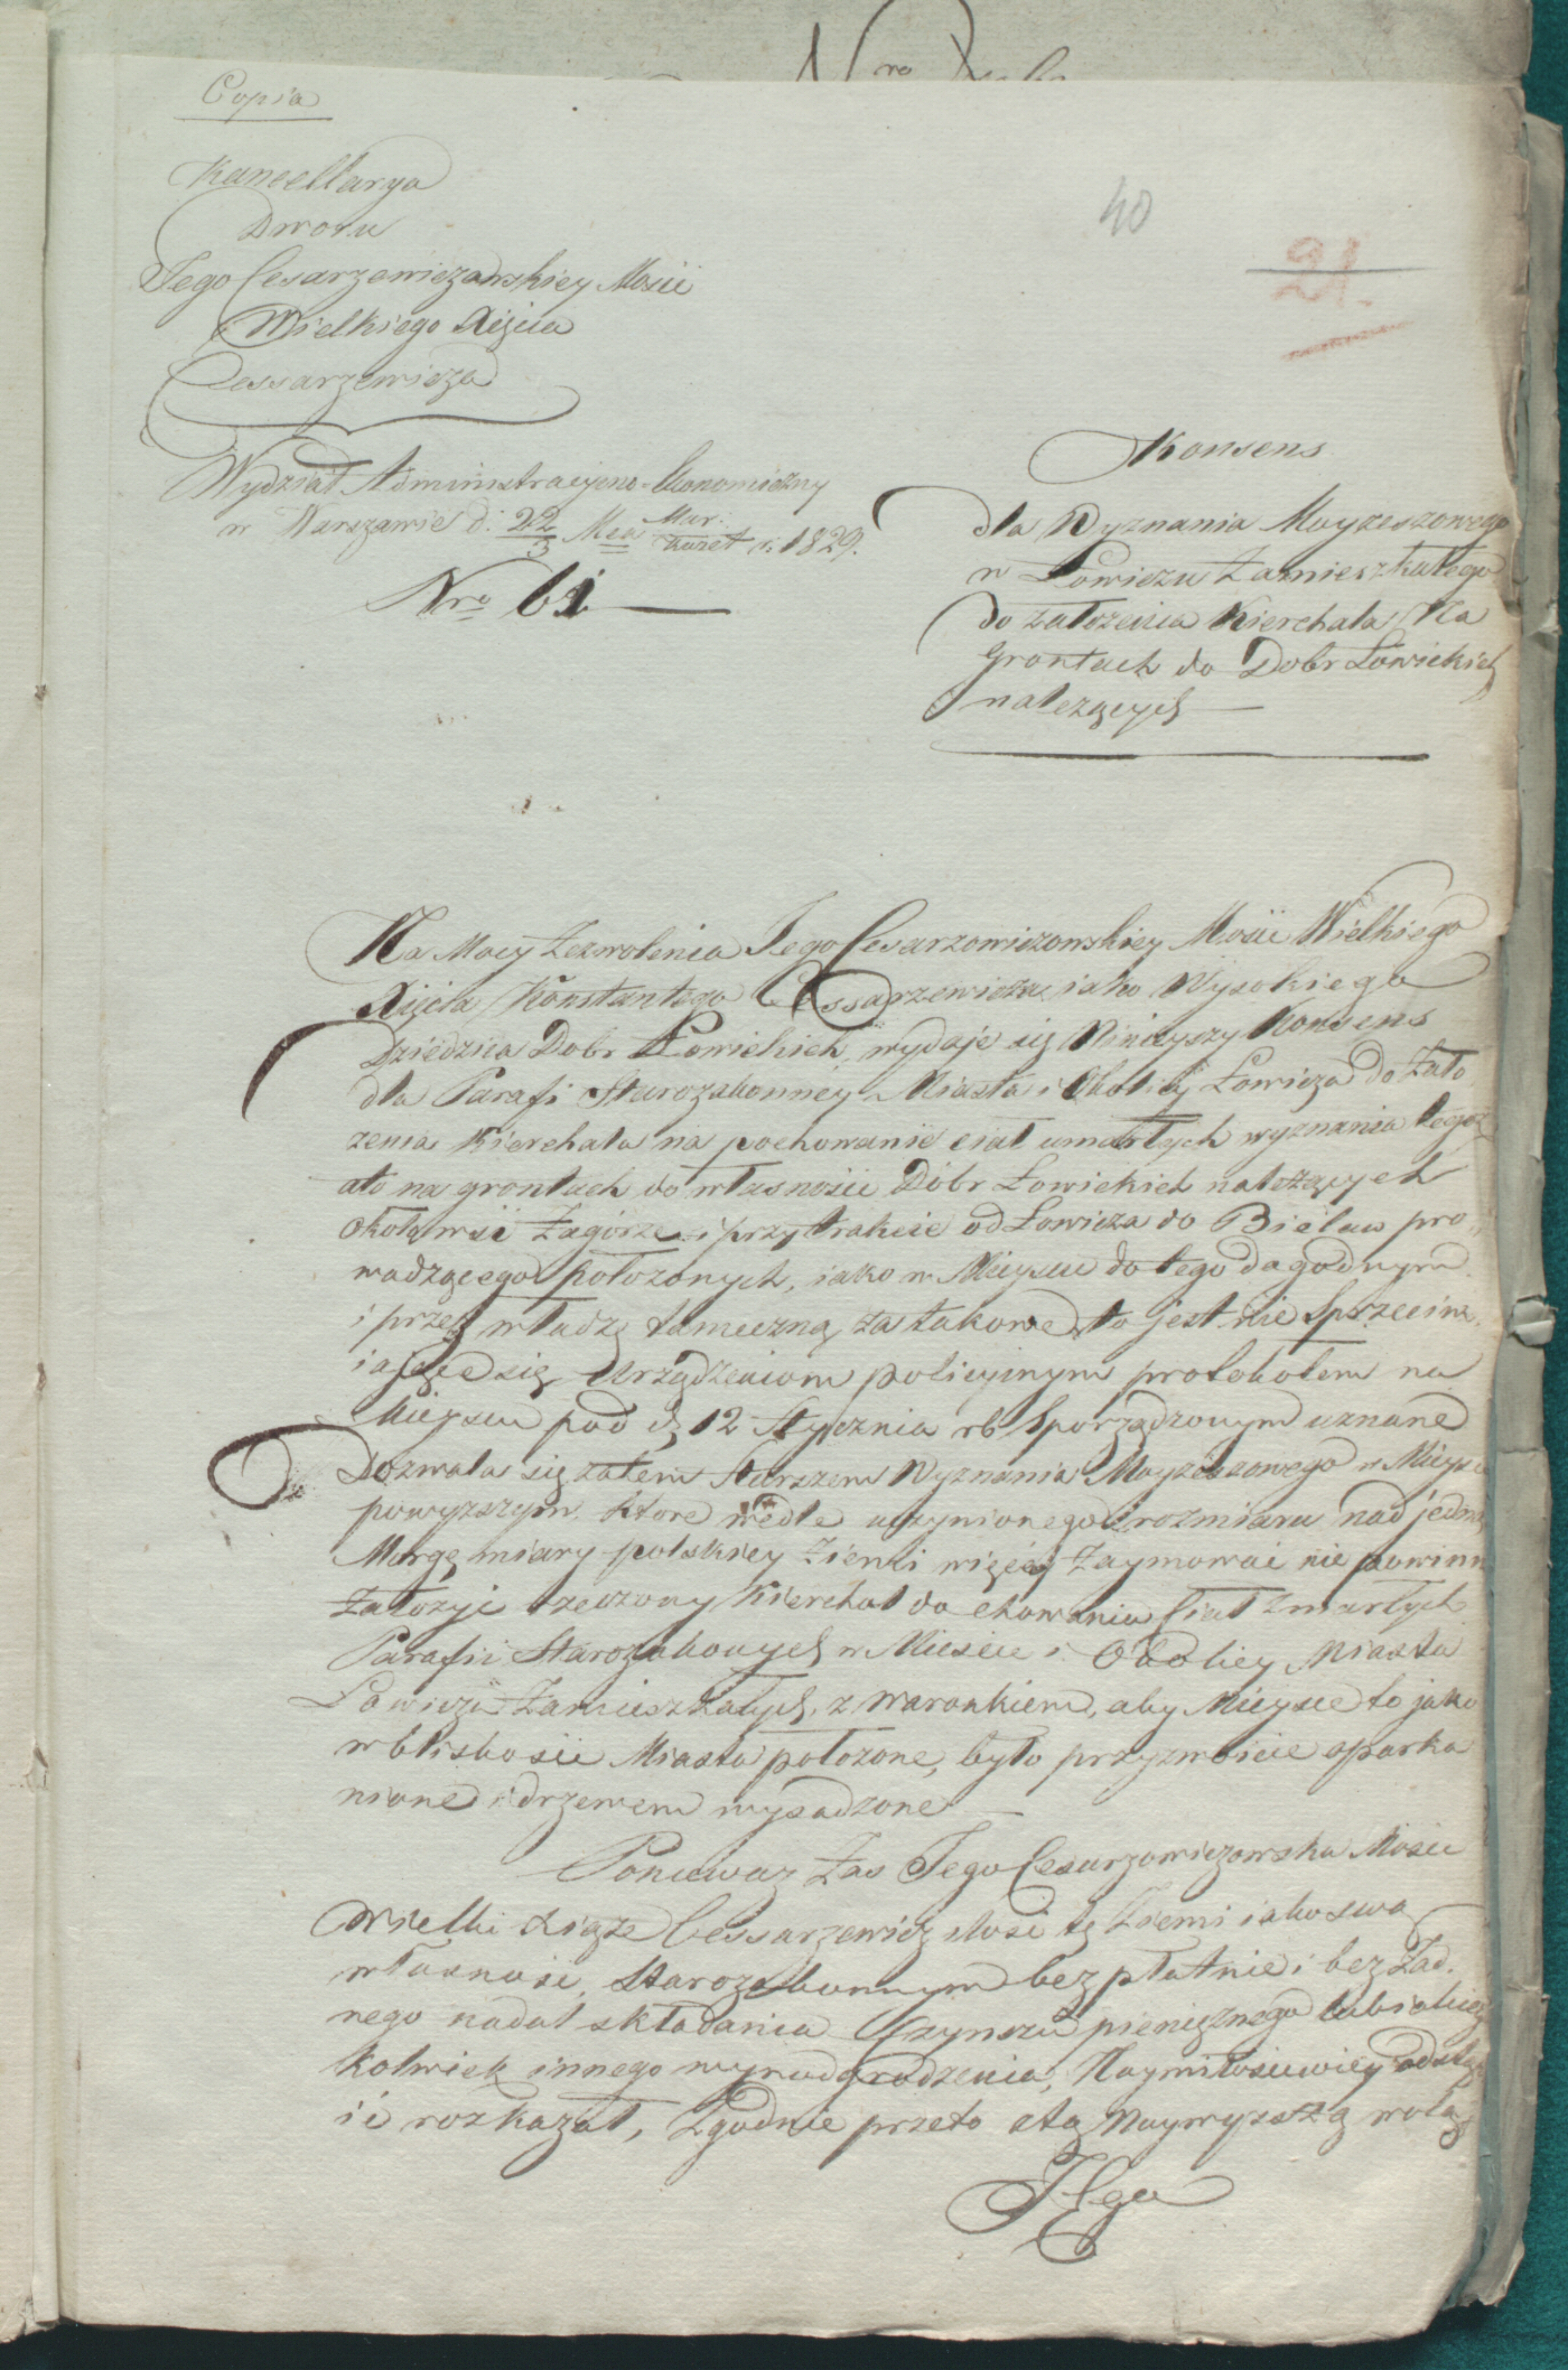 Copia
Kancellarya
Dworu
Jego Cesarzewiczowskiey Mości
Wielkiego Xięcia
Cessarzewicza
Wydział Administracyjno-Ekonomiczny
w Warszawie d: 22/3 Mca Mar:/Kwiet r: 1829.
Nro 61
40
21.
Konsens
dla Wyznania Moyżeszowego
w Łowiczu Zamieszkałego
do założenia Kierchała Na
Grontach do Dobr Łowickich
należących
Na Mocy Zezwolenia Jego Cesarzowiczowskiey Mości Wielkiego
Xięcia Konstantego Cessarzewicza, iako Wysokiego
Dziedzica Dobr Łowickich, wydaje się Ninieyszy Konsens
dla Parafi Starozakonney Miasta i Okolicy Łowicza do Zało
żenia Kierchała na pochowanie ciał umarłych wyznania tegoż
a to na grontach do własności Dóbr Łowickich należących
około wsi Zagórze i przy trakcie od Łowicza do Bielaw pro
wadzącego położonych, iako w Mieyscu do tego dagodnym
i przez władzę tameczną za takowe to jest nie Sprzeciw
iające się Urządzeniom policyjnym protokołem na
Mieyscu pod d 12 Stycznia rb Sporządzonym uznane
Dozwala się zatem Starszem Wyznania Moyżeszowego w Mieysc
powyższym, które wedle uczynionego rozmiaru nad jedną
Morgę miary polskiey Ziemi więcéj Zaymować nie powinn
Założyć rzeczony Kierchoł do chowania Ciał Zmarłych
Parafii Starozakonych w Mieście i Okolicy Miasta
Łowicza Zamieszkałych, z waronkiem, aby Mieysce to jako
w bliskości Miasta położone, było przyzwoicie oparka
nione i drzewem wysadzone
Ponieważ Zaś Jego Cesarzowiczowska Mości
Wielki Xiąże Cessarzewicz ilość tę Ziemi iako swą
własność, Starozakonnym bezpłatnie i bez Żad.
nego nadal składania Czynszu pieniężnego lub iakieg
kolwiek innego wynadgrodzenia, Naymiłościwiey odstąp
ić rozkazał, Zgodnie przeto z tą Naywyższą wolą
JEgo